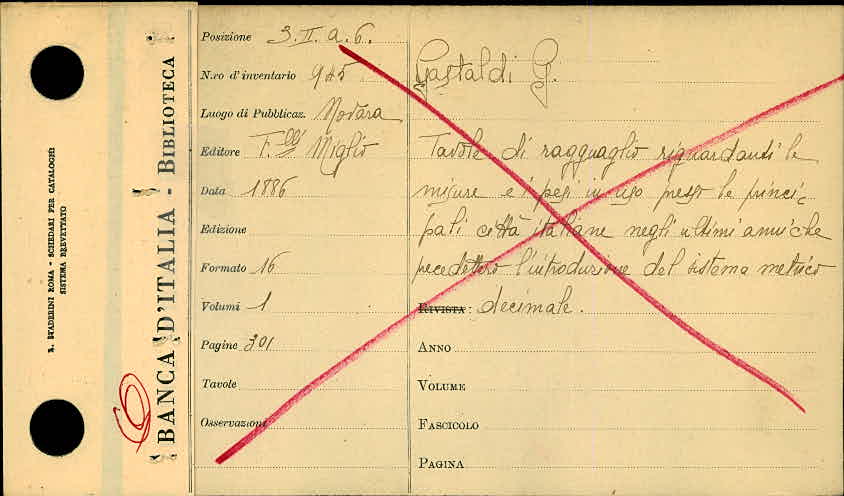 R. STADERINI ROMA - SCHEDARI PER CATALOGHI
SISTEMA BREVETTATO
BANCA D'ITALIA - BIBLIOTECA
6
Posizione 3.II.a.6.
N.ro d'inventario 945
Luogo di Pubblicaz. Novara
Editore F.lli Miglio
Data 1886
Edizione
Formato 16
Volumi 1
Pagine 301
Tavole
Osservazioni
Gastaldi G.
Tavole di ragguaglio riguardanti le
misure e i pesi in uso presso le princi-
pali città italiane negli ultimi anni che
precedettero l'introduzione del sistema metrico
RIVISTA: decimale.
ANNO
VOLUME
FASCICOLO
PAGINA